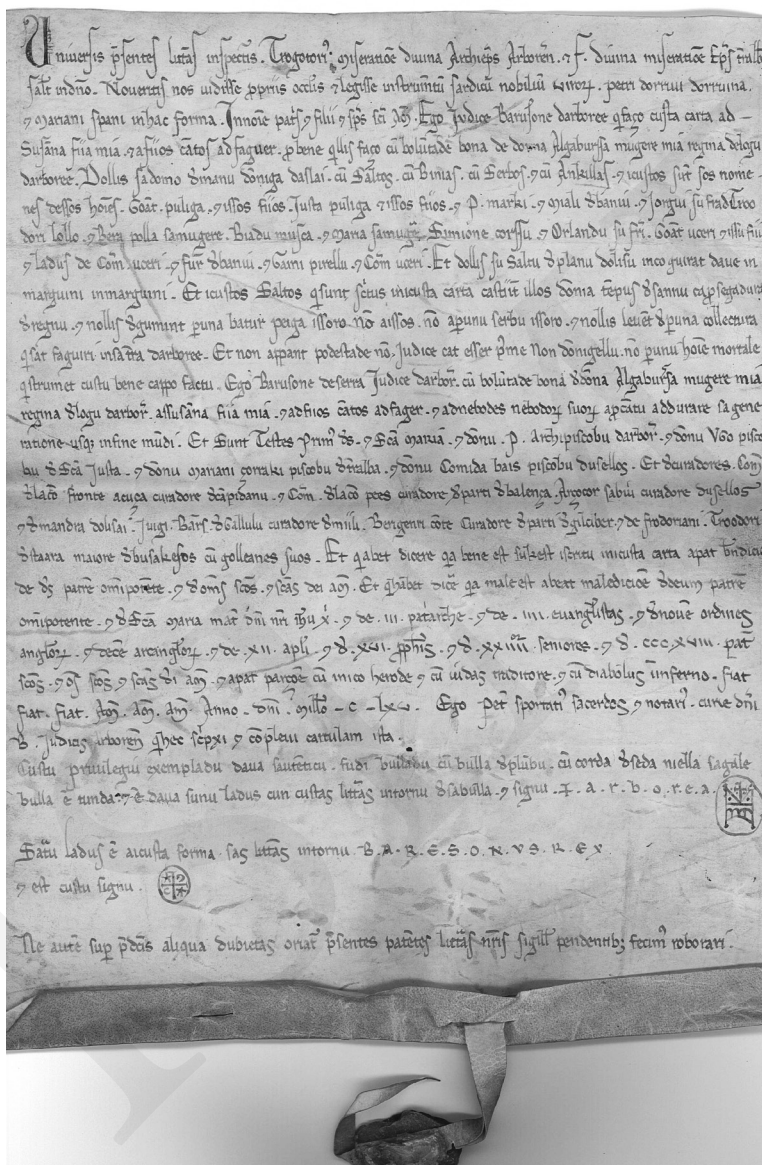 Universis p̄sentes litt̄as inspectur̄. Trogotori⁹ miserat̄ioē divina Archiep̄s Arboreñ. ⁊ F. divina miserat̄ioē Ep̄s t̄ralb̄
salt̄ in dño. Noveritis nos vidisse propriis oc̄lis ⁊ legisse instrum̄tū sardicū nobiliū viroꝝ. petri dorrui dorruina.
⁊ Mariani spani in hac forma. In noīe pat̄s ⁊ filii ⁊ sp̄s sc̄i Am̄. Ego Iudice Barusone darboree q̄ faço custa carta ad
Susaña fiia mia. ⁊ a fiios cantos ad faguer. p̄ bene q̄llis faço cū bolūtade bona de donna Algaburssa mugere mia regina de logu
darboreē. Dollis sa domo d̄manu dōniga daslai. cū Saltos. cū Binias. cū Serbos. ⁊ cū Ankillas. ⁊ icustos sūt sos nome
nes dessos hoīes. Goāt. puliga. ⁊ issos fiios. Iusta puliga ⁊ issos fiios. ⁊ P. marki. ⁊ Mialı d̄banui. ⁊ Jorgui su frad̄ Troo
dori lollo. ⁊ Bera polla sa mugere. Biadu musca. ⁊ Maria sa mug̃e. Simione corssu. ⁊ Orlandu su fr̄i. Goāt uceri ⁊ issu fiiu
⁊ ladus de Com̄ uceri. ⁊ fur̄ d̄banui. ⁊ Garni pirellu. ⁊ Com̄ uceri. Et dollis su Saltu d̄planu dolisu inco guirat dave in
marguini in marguini. Et icustos Saltos q̄ sunt sc̄tus in icusta carta castiit illos dōnia tēpus d̄ sannu
d̄regnu. ⁊ nollis d̄gumint p̄ una batur peiga issoro nō aissos. nō a p̄unu serbu issoro. ⁊ nollis levēt d̄puna collectura
q̄ sāt faguiri in sa t̄ra darboree. Et non appant podestade nō. Iudice cat esser p̄me Non dōnigellu. nō p̄unu hoīe mortale
q̄ strumet custu bene cappo factu. Ego Barusone de serra Iudice darbor̄. cū bolūtade bona d̄dōna Algaburssa mugere mia
regina d̄logu darbor̄. assusāna fiia mia. ⁊ ad fiios cātos ad fager. ⁊ ad nebodes nebodoꝝ suoꝝ ap̄cātu ad durare sa gene
ratione usqꝫ in fine mūdi. Et Sunt Testes Primꝰ d̄s. ⁊ Sc̄a Maria. ⁊ dōnu. P. Archipiscobu darbor̄. ⁊ dōnu Ugo pisco
bu d̄Sc̄a Iusta. ⁊ dōnu Mariani çorraki piscobu d̄tralba. ⁊ dōnu Comida bais piscobu dusellos. Et d̄curadores. Com̄
d̄lacō fronte acuça curadore d̄cāpidanu. ⁊ Com̄. d̄lacō pees curadore d̄parti d̄balença. Arçocor sabiu curadore dusellos
⁊ d̄mandra dolisai. Juigi. Bar̄s. d̄Gallulu curadore d̄miili. Bergenti cōte Curadore d̄parti d̄gilciber. ⁊ de frodoriani. Troodori
d̄staara maiore d̄buiakesos cū golleanes suos. Et q̄ abet dicere q̄a bene est sukest isc̄ritu in icusta carta apat bn̄dicio
de d̄s patrē omīpotēte. ⁊ d̄ omīs sc̄os. ⁊ sc̄as dei am̄. Et q̄ habet dic̄e q̄a male est abeat maledicioē d̄deum patrē
omīpotente. ⁊ d̄Sc̄a Maria mat̄ dn̄i nr̄i ihū x̄. ⁊ de. III. pat̄arche. ⁊ de. IIII. evangl̄istas. ⁊ d̄novē ordines
angloꝝ. ⁊ decē arcangloꝝ. ⁊ de. XII. apl̄i. ⁊ d̄. XVI. p̄phis. ⁊ d̄. XXIIII. seniores. ⁊ d̄. CCCXVIII. pat̄
sc̄os. ⁊ os̄ sc̄os ⁊ sc̄as d̄i am̄. ⁊ apat parçōe cū inico herode ⁊ cū iudas traditore. ⁊ cū diabolus in inferno. fiat
fiat. fiat. Am̄. Am̄. Am̄. Anno. dn̄i. Mill̄o. C. LXV. Ego Pet̄ sportatꝰ sacerdos ⁊ notariꝰ curie dn̄i
B. Iudicis arboreñ q̄ hec sc̄pxi ⁊ cōplevi cartulam ista.
Custu privilegiu exempladu dava sautenticu. fudi bulladu cū bulla d̄plūbu. cū corda d̄seda niella sagale
bulla ē tunda. ⁊ ē dava sunu ladus cun custas litt̄as intornu d̄sabulla. ⁊ signu. a. r. b. o. r. e. a.
Satru ladus ē aicusta forma. sas litt̄as intornu. B. A. R. E. S. O. N. V S. R. E X.
⁊ est custu signu.
Ne autē sup̄ p̄dcīs aliqua dubietas oriat̄ p̄sentes patētes litt̄as nr̄is sigill̄ pendentibꝫ fecimꝰ roborari.